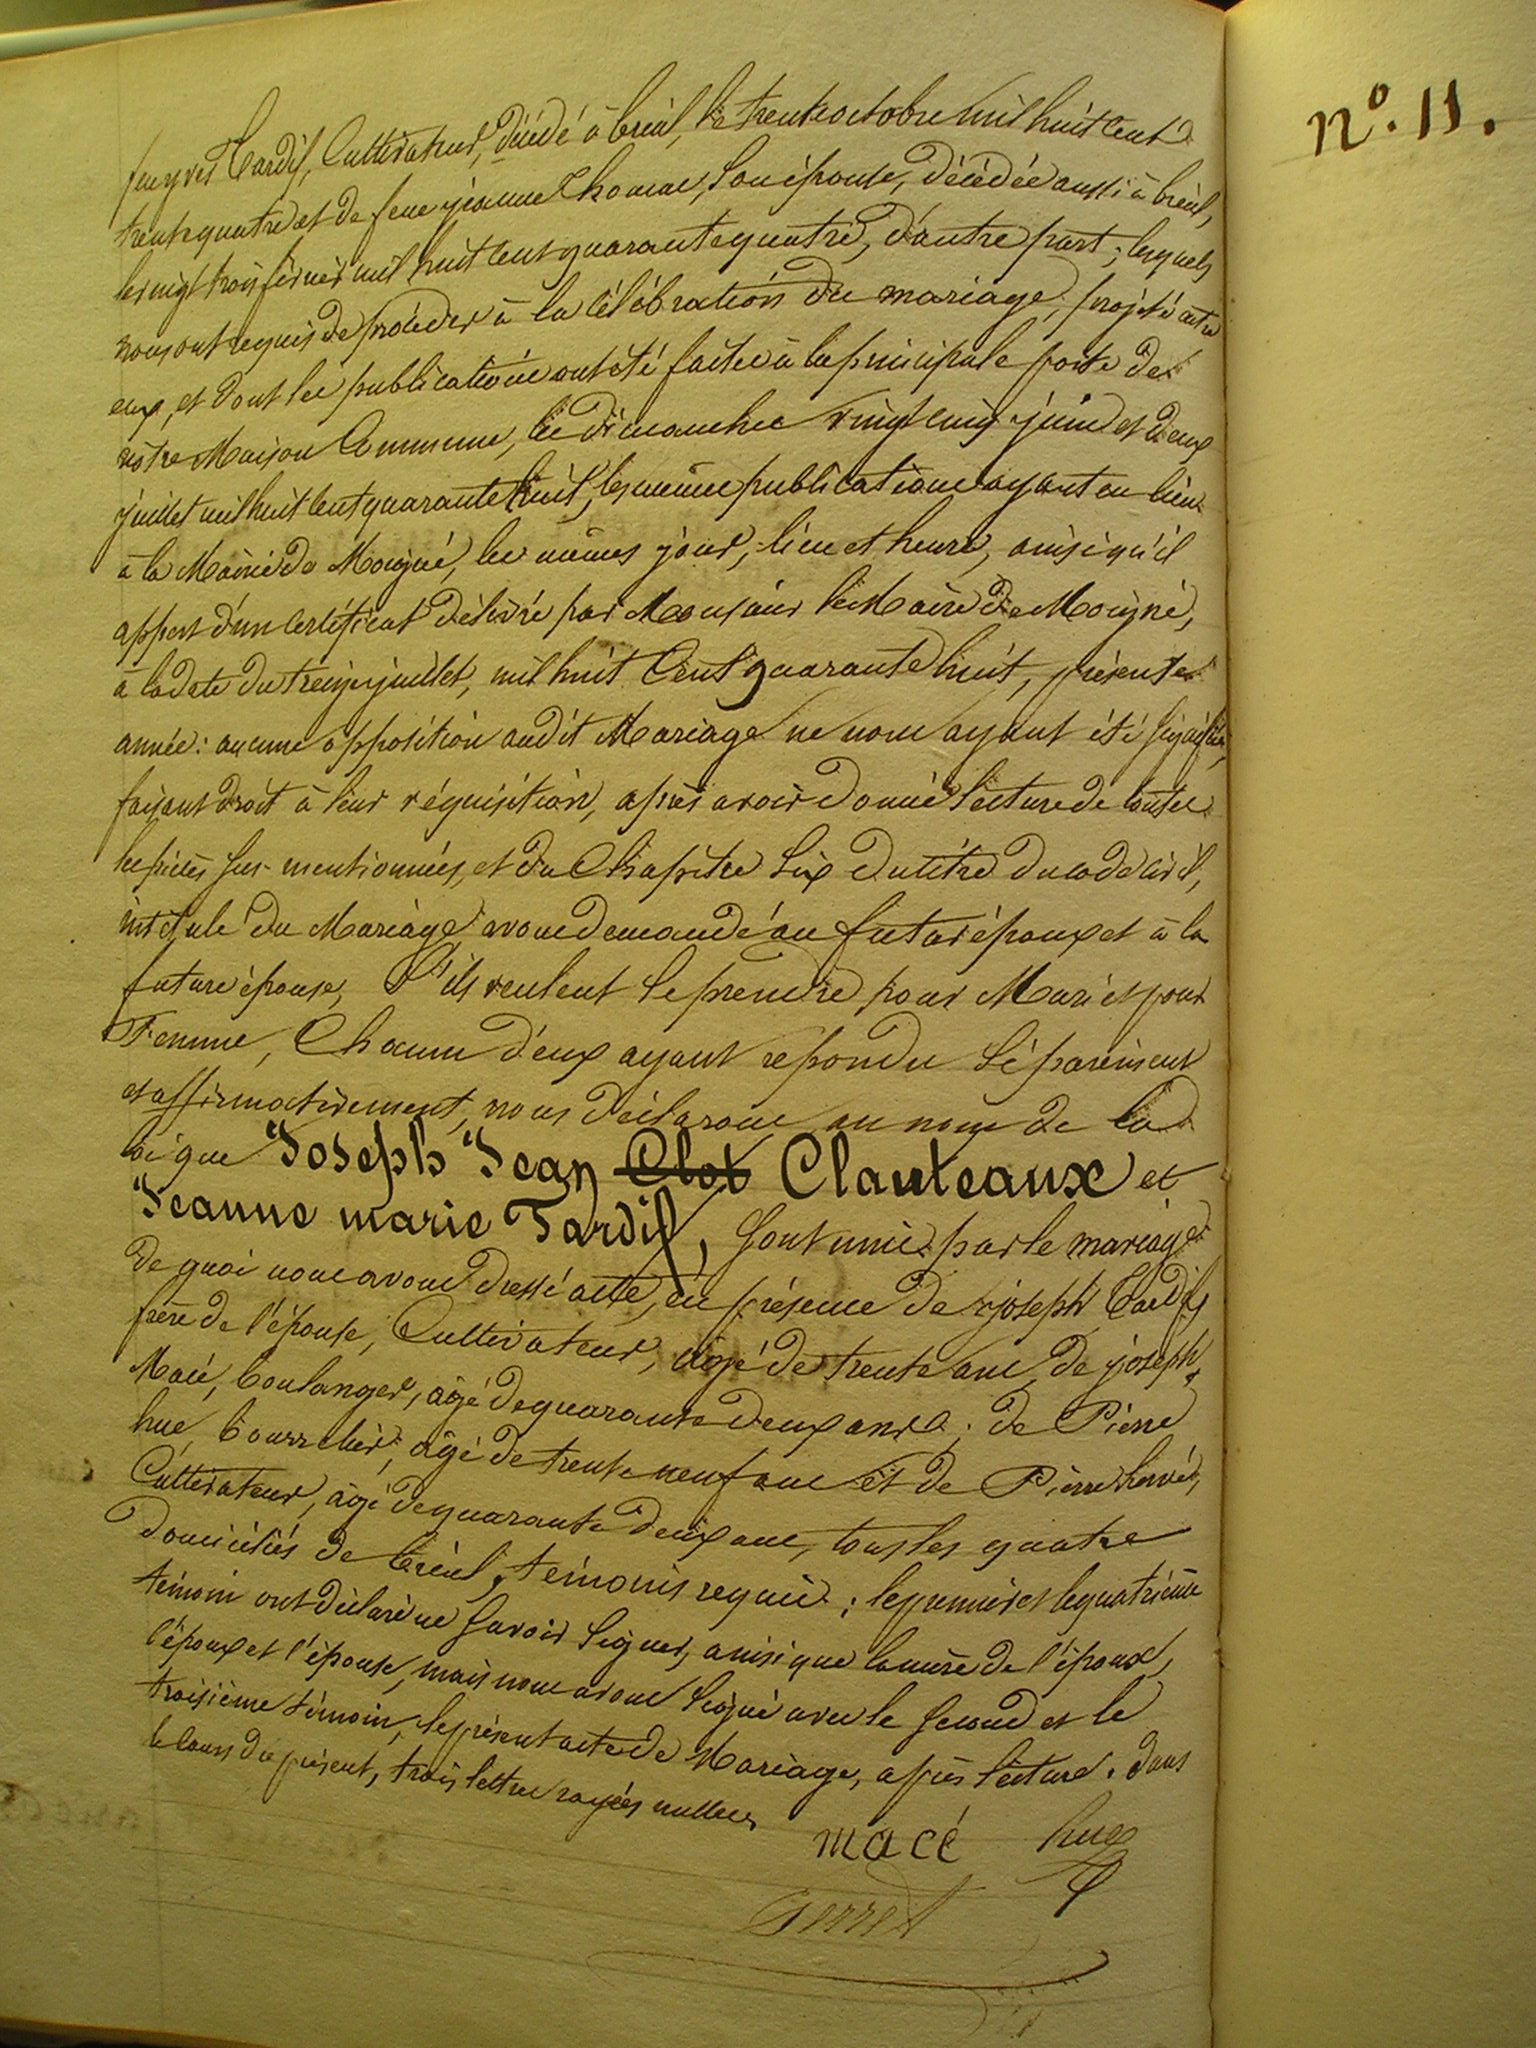 feu yves Tardif, Cultivateur, décédé à bréal, le trente octobre mil huit cent
trente quatre et de feue jeanne Thomas, Son épouse, décédée aussi à bréal,
le vingt trois février mil huit cent quarante quatre, d'autre part; lesquels
nous ont requis de procéder à la célébration du mariage, projeté entre
eux, et dont les publications ont été faites à la principale porte de
nôtre Maison Commune, les dimanches vingt cinq juin et deux
juillet mil huit cent quarante huit, les mêmes publications ayant eu lieu
à la Mairie de Moigné, les mêmes jours, lieu et heure, ainsi qu'il
appert d'un Certificat délivré par Monsieur le Maire de Moigné,
à la date du treize juillet, mil huit Cent quarante huit, présente
année: aucune opposition audit Mariage ne nous ayant été signifiée,
faisant droit à leur réquisition, après avoir donné lecture de toutes
les pièces sus-mentionnées, et du Chapitre Six du titre du code civil,
intitulé du Mariage avons demandé au futur époux et à la
future épouse, S'ils veulent se prendre pour Mari et pour
Femme, Chacun d'eux ayant répondu Séparément
et affirmativement, nous déclarons au nom de la
loi que Joseph Jean Clot Clauteaux et
Jeanne marie Tardif, sont unis par le mariage
de quoi nous avons dressé acte, en présence de joseph Tardif
frère de l'épouse, Cultivateur, âgé de trente ans, de joseph
Macé, boulanger, âgé de quarante deux ans; de Pierre
hué, bourrelier, âgé de trente neuf ans et de Pierre hervé,
Cultivateur, âgé de quarante deux ans, tous les quatre
domiciliés de bréal, témoins requis; le premier et le quatrième
témoin ont déclaré ne savoir Signer, ainsi que la mère de l'époux,
l'époux et l'épouse, mais nous avons Signé avec le second et le
troisième témoin, le présent acte de Mariage, après lecture. dans
le cours du présent, trois lettres rayées nulles
macé hué
n°. 11.